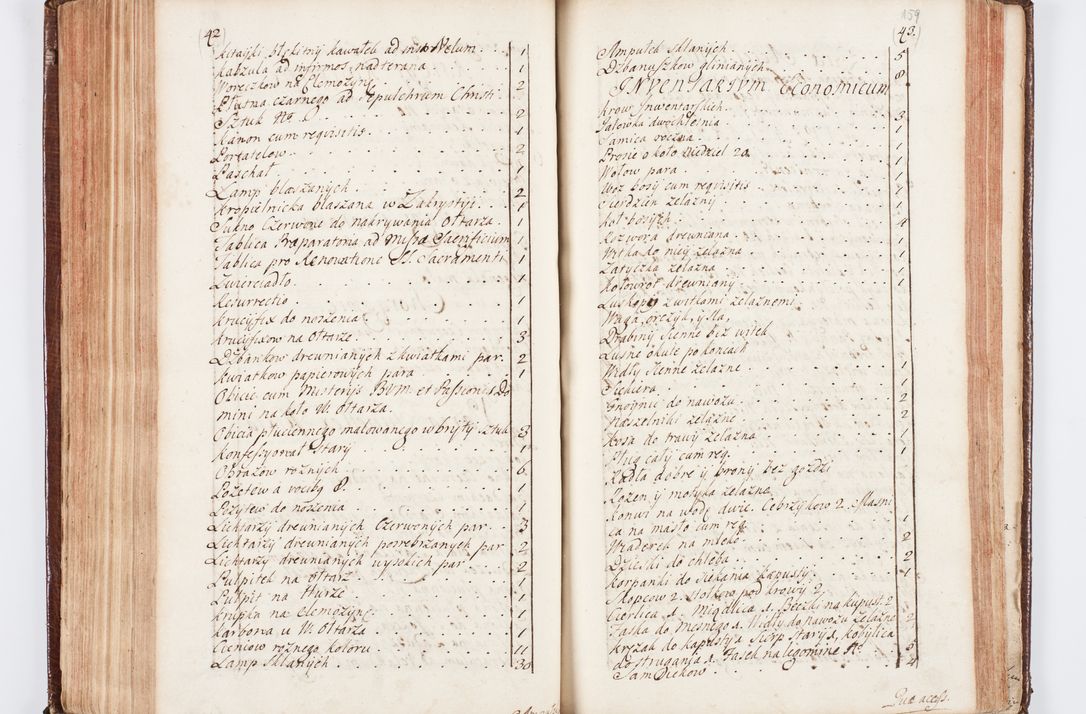 42
Kitayki błękitny kawałek ad Velum . 1
Kabzula ad infirmos nadterana . . 1
Woreczkow na Elemozynę . . 2
Płutna czarnego ad Sepulchrum Christi
Sztuk Nº . . 2
Kanon cum requisitis . . 1
Portatelow . . 2
Paschał . . 1
Lamp blaszanych . . 2
Kropielnicka blaszana w Zakrystyi . 1
Sukno Czerwone do nakrywania Ołtarza . 1
Tablica Præparatoria ad Missæ Sacrificium 1
Tablica pro Renovatione SS. Sacramenti 1
Zwierciadło . . 1
Resurrectio . . 1
Krucyfix do noszenia . . 1
Krucyfixow na Ołtarze . . 3
Dzbankow drewnianych z kwiatkami par . 2
Kwiatkow papierowych para . . 1
Obicie cum Mysterys BVM et Passionis Do
mini na koło W. Ołtarza .
Obicia płuciennego malowanego w bryty sztuk 3
Konfessyonał stary . . 1
Obrazow roznych . . 6
Pozetew à vocug 8. . . 1
Pozytew do noszenia . . 1
Lichtarzy drewnianych Czerwonych par . 3
Lichtarzy drewnianych posrebrzanych par 2
Lichtarzy drewnianych wysokich par . 2
Pulpitek na ołtarz . . 1
Pulpit na Churze . . 1
na Elemozynę . . 1
Karbona u W. Ołtarza . . 1
Cieniow roznego koloru . . 11
Lamp szklanych . . 30
159
43.
Ampułek szklanych . . 5
Dzbanuszkow glinianych . . 8
INVENTARIVM Economicum
Krow Inwentarskich . . 3
Jałowka dwochletnia . . 1
Samica roczna . . 1
Prosie około Niedziel 20 . . 1
Wołow para . . 1
Woz bosy cum requisitis . . 1
Sierdzien zelazny . . 1
Koł bosych . . 4
Rozwora drewniana . . 1
Witka do niey zelazna . . 1
Zatyczka zelazna . . 1
Kołowrot drewniany . . 1
z witkami zelaznemi
Waga, orczyk, y sła,
Drabiny sienne bez uszek
Lusnie okute po końcach
Widły sienne zelazne . . 1
Siekiera . . 1
Gnoynic do nawozu . . 2
Naszelniki zelazne . . 2
Kosa do trawy zelazna . . 1
Pług cały cum req. . . 1
Radła dobre y brony bez gozdzi
Rozen y motyka zelazne
Konwi na wodę dwie. Cebrzykow 2. Masni
ca na masło cum req. . . 1
Wiaderek na mleko . . 2
Dzieski do chleba . . 2
Korpanki do siekania kapusty . . 1
Skopcow 2. stołkow pod krowy 2
Cierlica 1. Międlica 1. Beczki na kapust. 2
Faska do Mesnego 1. Widły do nawozu zelazne 2
krzak do kapusty 1 Sierp stary 1, kobylica
do strugania 1. Fasek na legomine Nº . 5
Samsiekow . . 4
Quæ access.